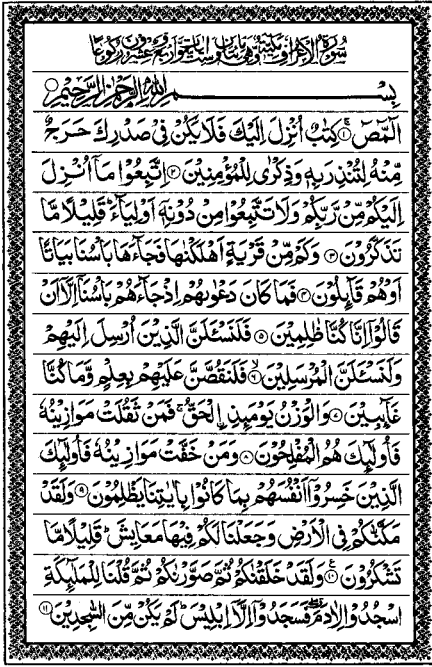 سُوْرَةُ الْاَعْرَافِ مَكِّيَّةٌ وَّهِيَ مِائَتَانِ وَسِتُّ اٰيَاتٍ وَّاَرْبَعٌ وَّعِشْرُوْنَ رُكُوْعًا
بِسْــــــمِ اللّٰهِ الرَّحْمٰنِ الرَّحِيْمِ
الٓمّٓصٓ ۝۱ كِتٰبٌ اُنْزِلَ اِلَيْكَ فَلَا يَكُنْ فِيْ صَدْرِكَ حَرَجٌ
مِّنْهُ لِتُنْذِرَ بِهٖ وَذِكْرٰى لِلْمُؤْمِنِيْنَ ۝۲ اِتَّبِعُوْا مَاۤ اُنْزِلَ
اِلَيْكُمْ مِّنْ رَّبِّكُمْ وَلَا تَتَّبِعُوْا مِنْ دُوْنِهٖۤ اَوْلِيَآءَ ؕ قَلِيْلًا مَّا
تَذَكَّرُوْنَ ۝۳ وَكَمْ مِّنْ قَرْيَةٍ اَهْلَكْنٰهَا فَجَآءَهَا بَاْسُنَا بَيَاتًا
اَوْ هُمْ قَآئِلُوْنَ ۝۴ فَمَا كَانَ دَعْوٰىهُمْ اِذْ جَآءَهُمْ بَاْسُنَاۤ اِلَّاۤ اَنْ
قَالُوْۤا اِنَّا كُنَّا ظٰلِمِيْنَ ۝۵ فَلَنَسْئَلَنَّ الَّذِيْنَ اُرْسِلَ اِلَيْهِمْ
وَلَنَسْئَلَنَّ الْمُرْسَلِيْنَ ۝۶ فَلَنَقُصَّنَّ عَلَيْهِمْ بِعِلْمٍ وَّمَا كُنَّا
غَآئِبِيْنَ ۝۷ وَالْوَزْنُ يَوْمَئِذِ اِۨلْحَقُّ ۚ فَمَنْ ثَقُلَتْ مَوَازِيْنُهٗ
فَاُولٰٓئِكَ هُمُ الْمُفْلِحُوْنَ ۝۸ وَمَنْ خَفَّتْ مَوَازِيْنُهٗ فَاُولٰٓئِكَ
الَّذِيْنَ خَسِرُوْۤا اَنْفُسَهُمْ بِمَا كَانُوْا بِاٰيٰتِنَا يَظْلِمُوْنَ ۝۹ وَلَقَدْ
مَكَّنّٰكُمْ فِي الْاَرْضِ وَجَعَلْنَا لَكُمْ فِيْهَا مَعَايِشَ ؕ قَلِيْلًا مَّا
تَشْكُرُوْنَ ۝۱۰ وَلَقَدْ خَلَقْنٰكُمْ ثُمَّ صَوَّرْنٰكُمْ ثُمَّ قُلْنَا لِلْمَلٰٓئِكَةِ
اسْجُدُوْا لِاٰدَمَ ۖ فَسَجَدُوْۤا اِلَّاۤ اِبْلِيْسَ ؕ لَمْ يَكُنْ مِّنَ السّٰجِدِيْنَ ۝۱۱